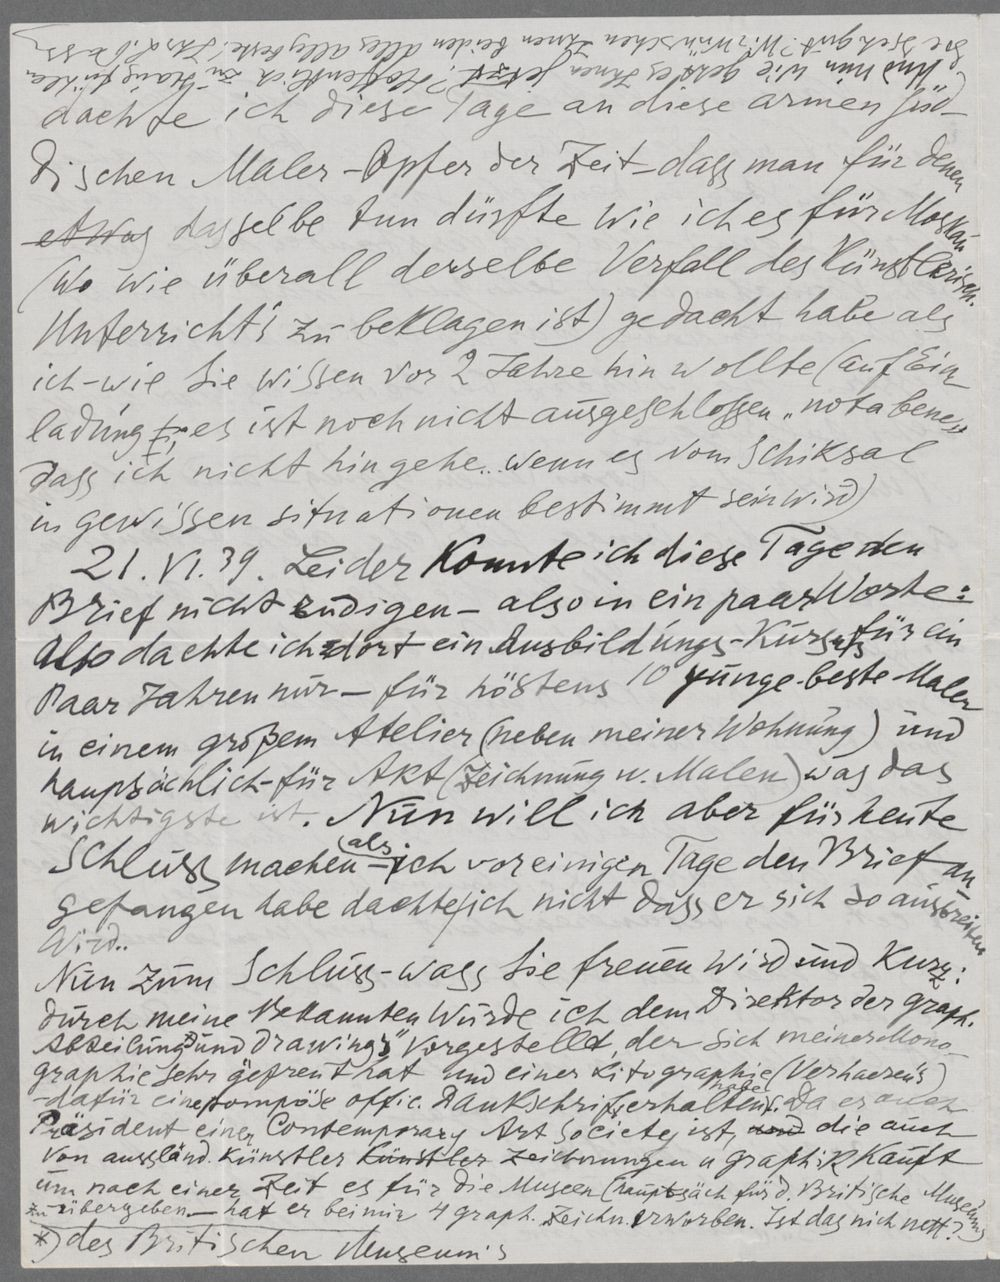 dachte ich diese Tage an diese armen jüd-
dischen Maler - Opfer der Zeit - dass man für denen
etwas dasselbe tun dürfte wie ich es für Moskau
(wo wie überall derselbe Verfall des Künstlerisch.
Unterricht's zu beklagen ist) gedacht habe als
ich - wie Sie wissen vor 2 Jahre hin wollte (auf Ein-
ladung es ist noch nicht ausgeschlossen „nota bene"
dass ich nicht hingehe.. wenn es vom Schiksal
in gewissen situationen bestimmt sein wird)
21. VI. 39. Leider konnte ich diese Tage den
Brief nicht endigen - also in ein paar Worte:
Also dachte ich dort ein Ausbildungs-Kursus für ein
Paar Jahren nur - für höstens 10 junge beste Maler
in einem großem Atelier (neben meiner Wohnung) und
haupsächlich - für Akt (Zeichnung u. Malen) was das
wichtigste ist. Nun will ich aber für heute
Schluss machen - als ich vor einigen Tage den Brief an-
gefangen habe dachte ich nicht dass er sich so ausbreiten
wird..
Nun zum Schluss - wass Sie freuen wird und Kurz:
durch meine Bekannten wurde ich dem Direktor der graph.
Abteilung und drawings" vorgestellt, der sich meiner Mono-
graphie sehr gefreut hat und einer Litographie (Verhaeren's)
- dafür eine pompöse offic. Dankschrift erhalten habe. Da er auch
Präsident einer Contemporary Art Society ist, und die auch
von aussländ. Künstler Künstler Zeichnungen u graphik kauft
um nach einer Zeit es für die Museen (hauptsäch für d. Britische Museum)
zu übergeben - hat er bei mir 4 graph. Zeichn. erworben. Ist das nich nett?
*) des Britischen Museum's
Und nun wie geht es Ihnen jetzt? Hoffentlich zu Hause fühlen
Sie sich gut? Wir wünschen Ihnen beiden alles allerbeste!